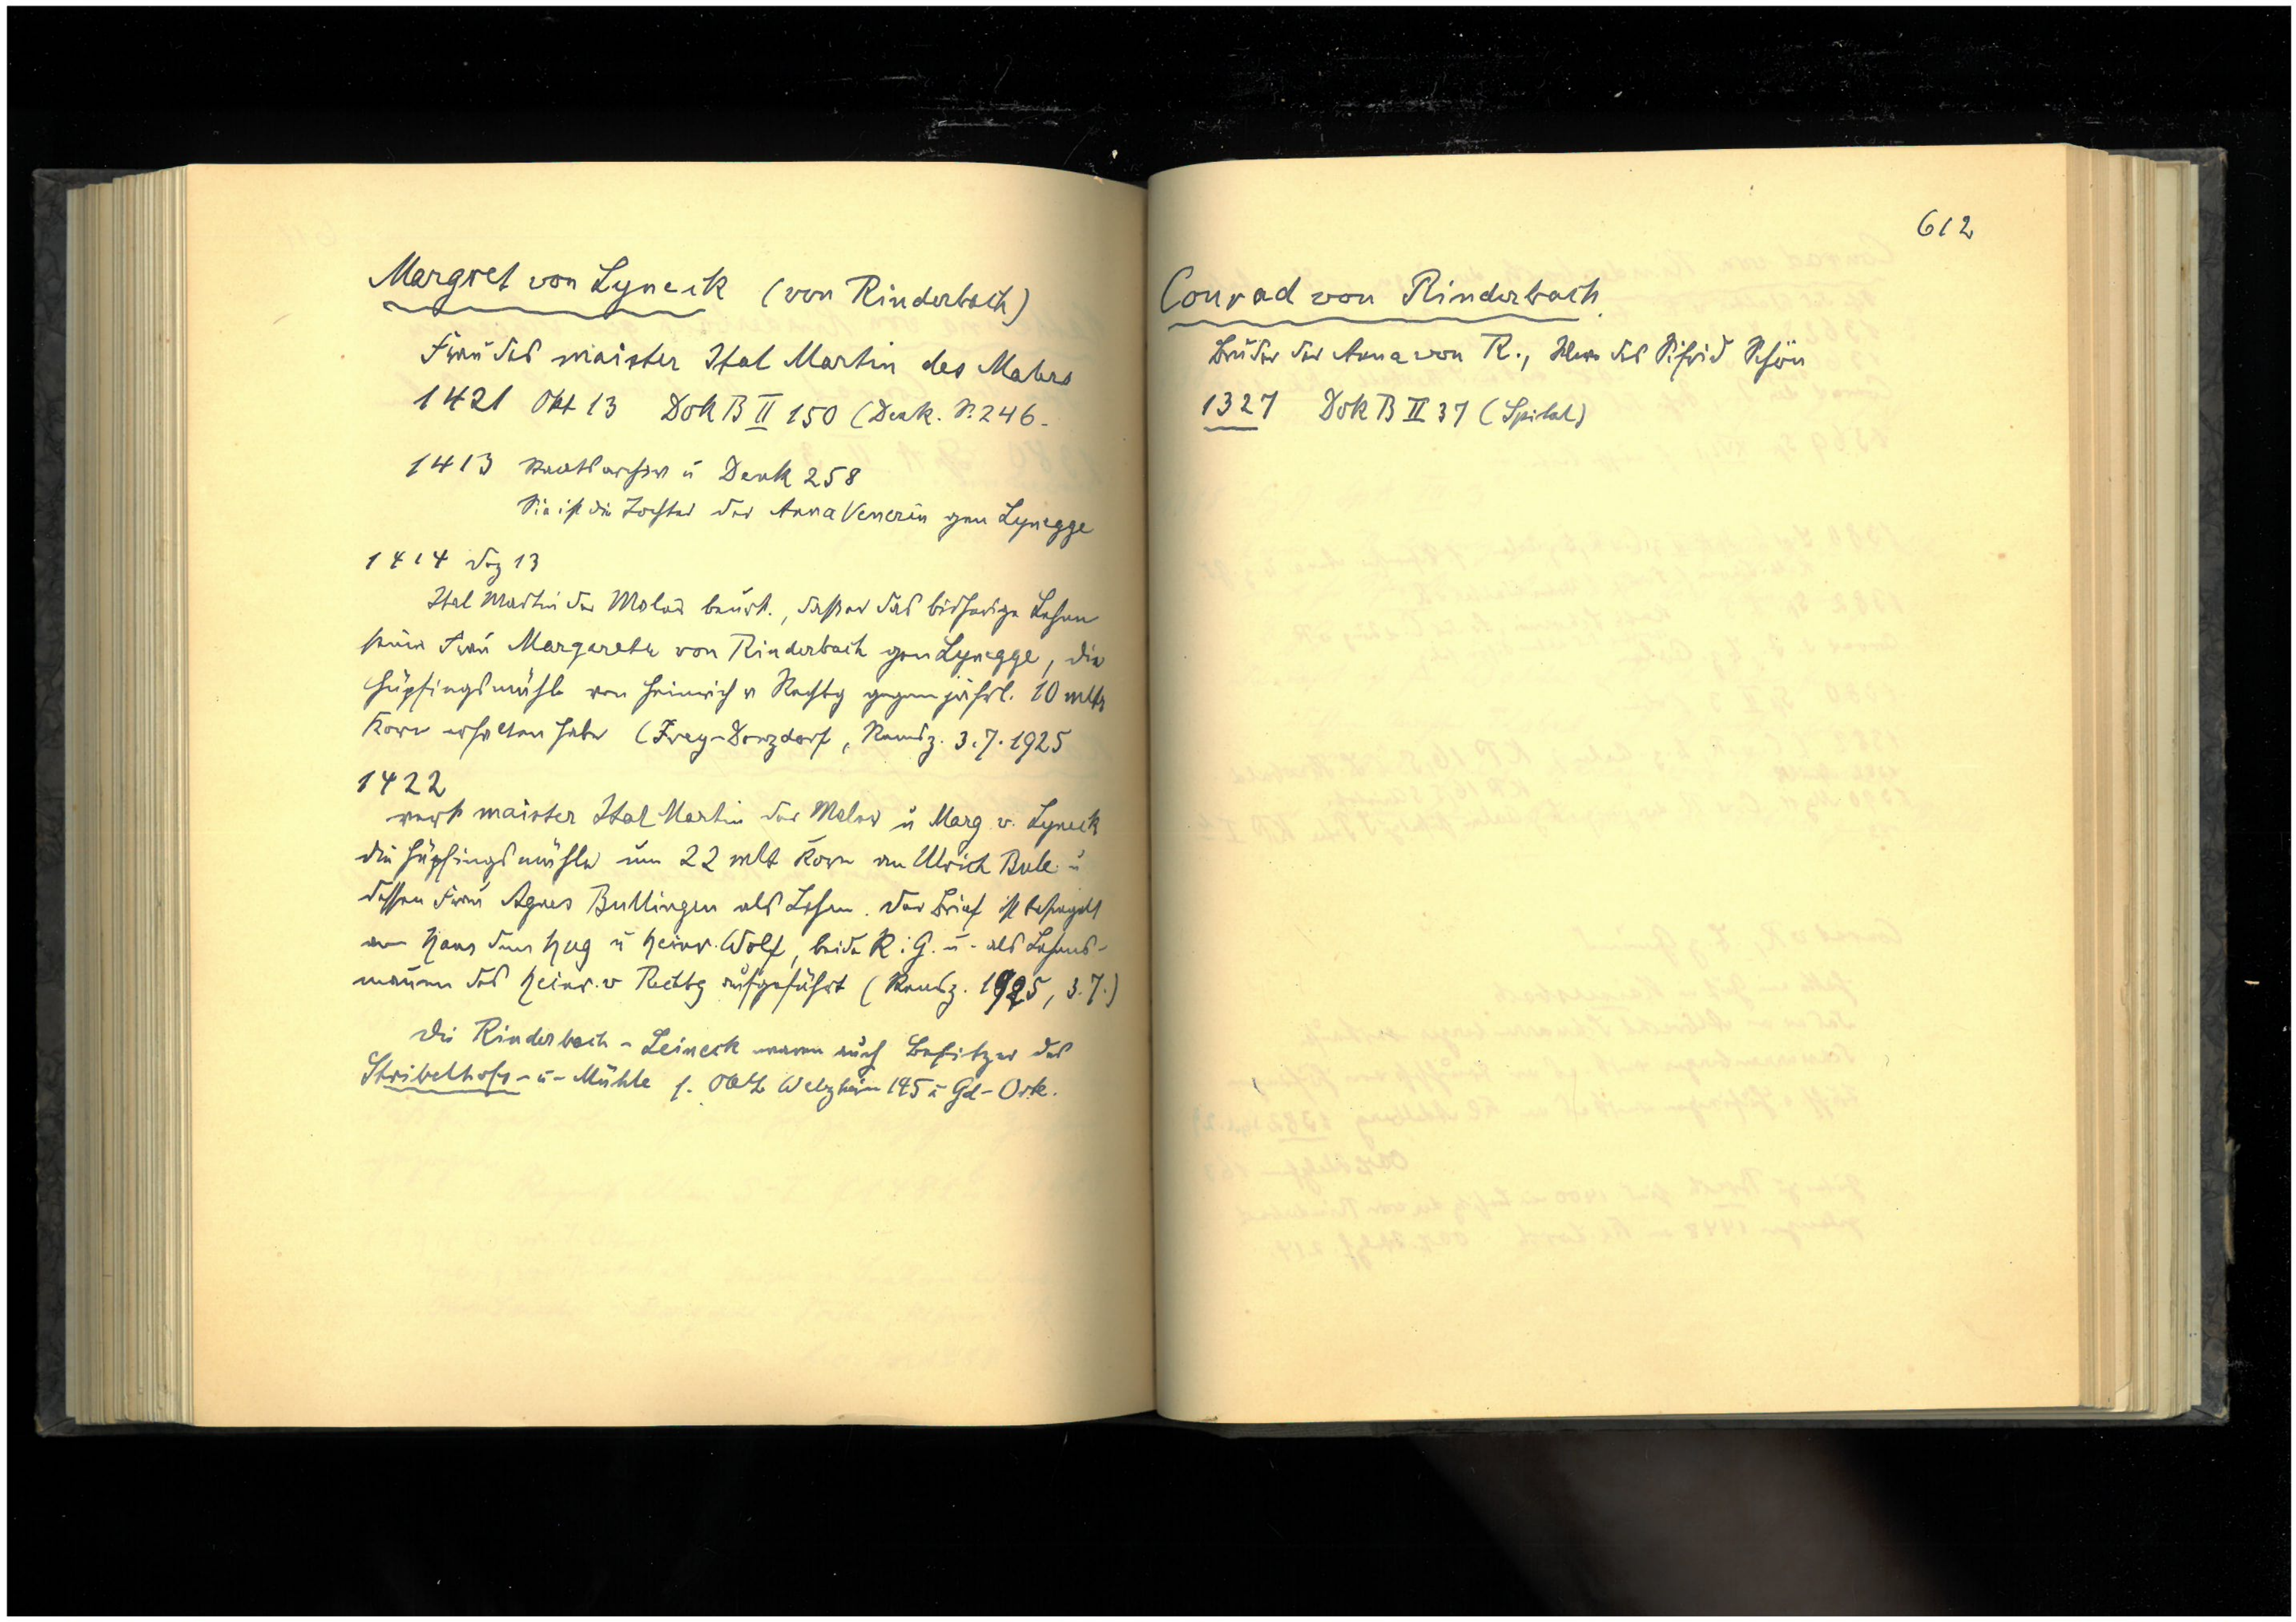 Margret von Lyneck (von Rinderbach)
Frau des maister Ital Martin des Malers
1421 Okt 13 Dok B II 150 (Denk. S. 246.
1413 Staatsarchiv u Denk 258
Sie ist die Tochter der Anna Venerin gen Lynegge
1414 Dez 13
Ital Martin der Maler beurk., daß er das bisherige Lehen
seiner Frau Margarete von Rinderbach gen Lynegge, die
Hüpfingsmühle von Heinrich v Rechbg gegen jährl. 10 mltr
Korn erhalten habe (Frey-Donzdorf, Remsz. 3.7.1925
1422
verk maister Ital Martin der Maler u Marg v. Lyneck
die Hüpfingsmühle um 22 mlt Korn an Ulrich Bule u
dessen Frau Agnes Bullingen als Lehen. Der Brief ist besiegelt
von Hans dem Hug u Heinr. Wolf, beide R: G. u. als Lehens-
mannen des Heinr. v Rechbg aufgeführt (Remsz. 1925, 3.7.)
Die Rinderbach-Leineck waren auch Besitzer des
Stribelhofs- u- Mühle s. Welzheim 195 u Gd-
612
Conrad von Rinderbach
Bruder der Anna von R., des Sifrid Schön
1327 Dok B II 37 (Spital)